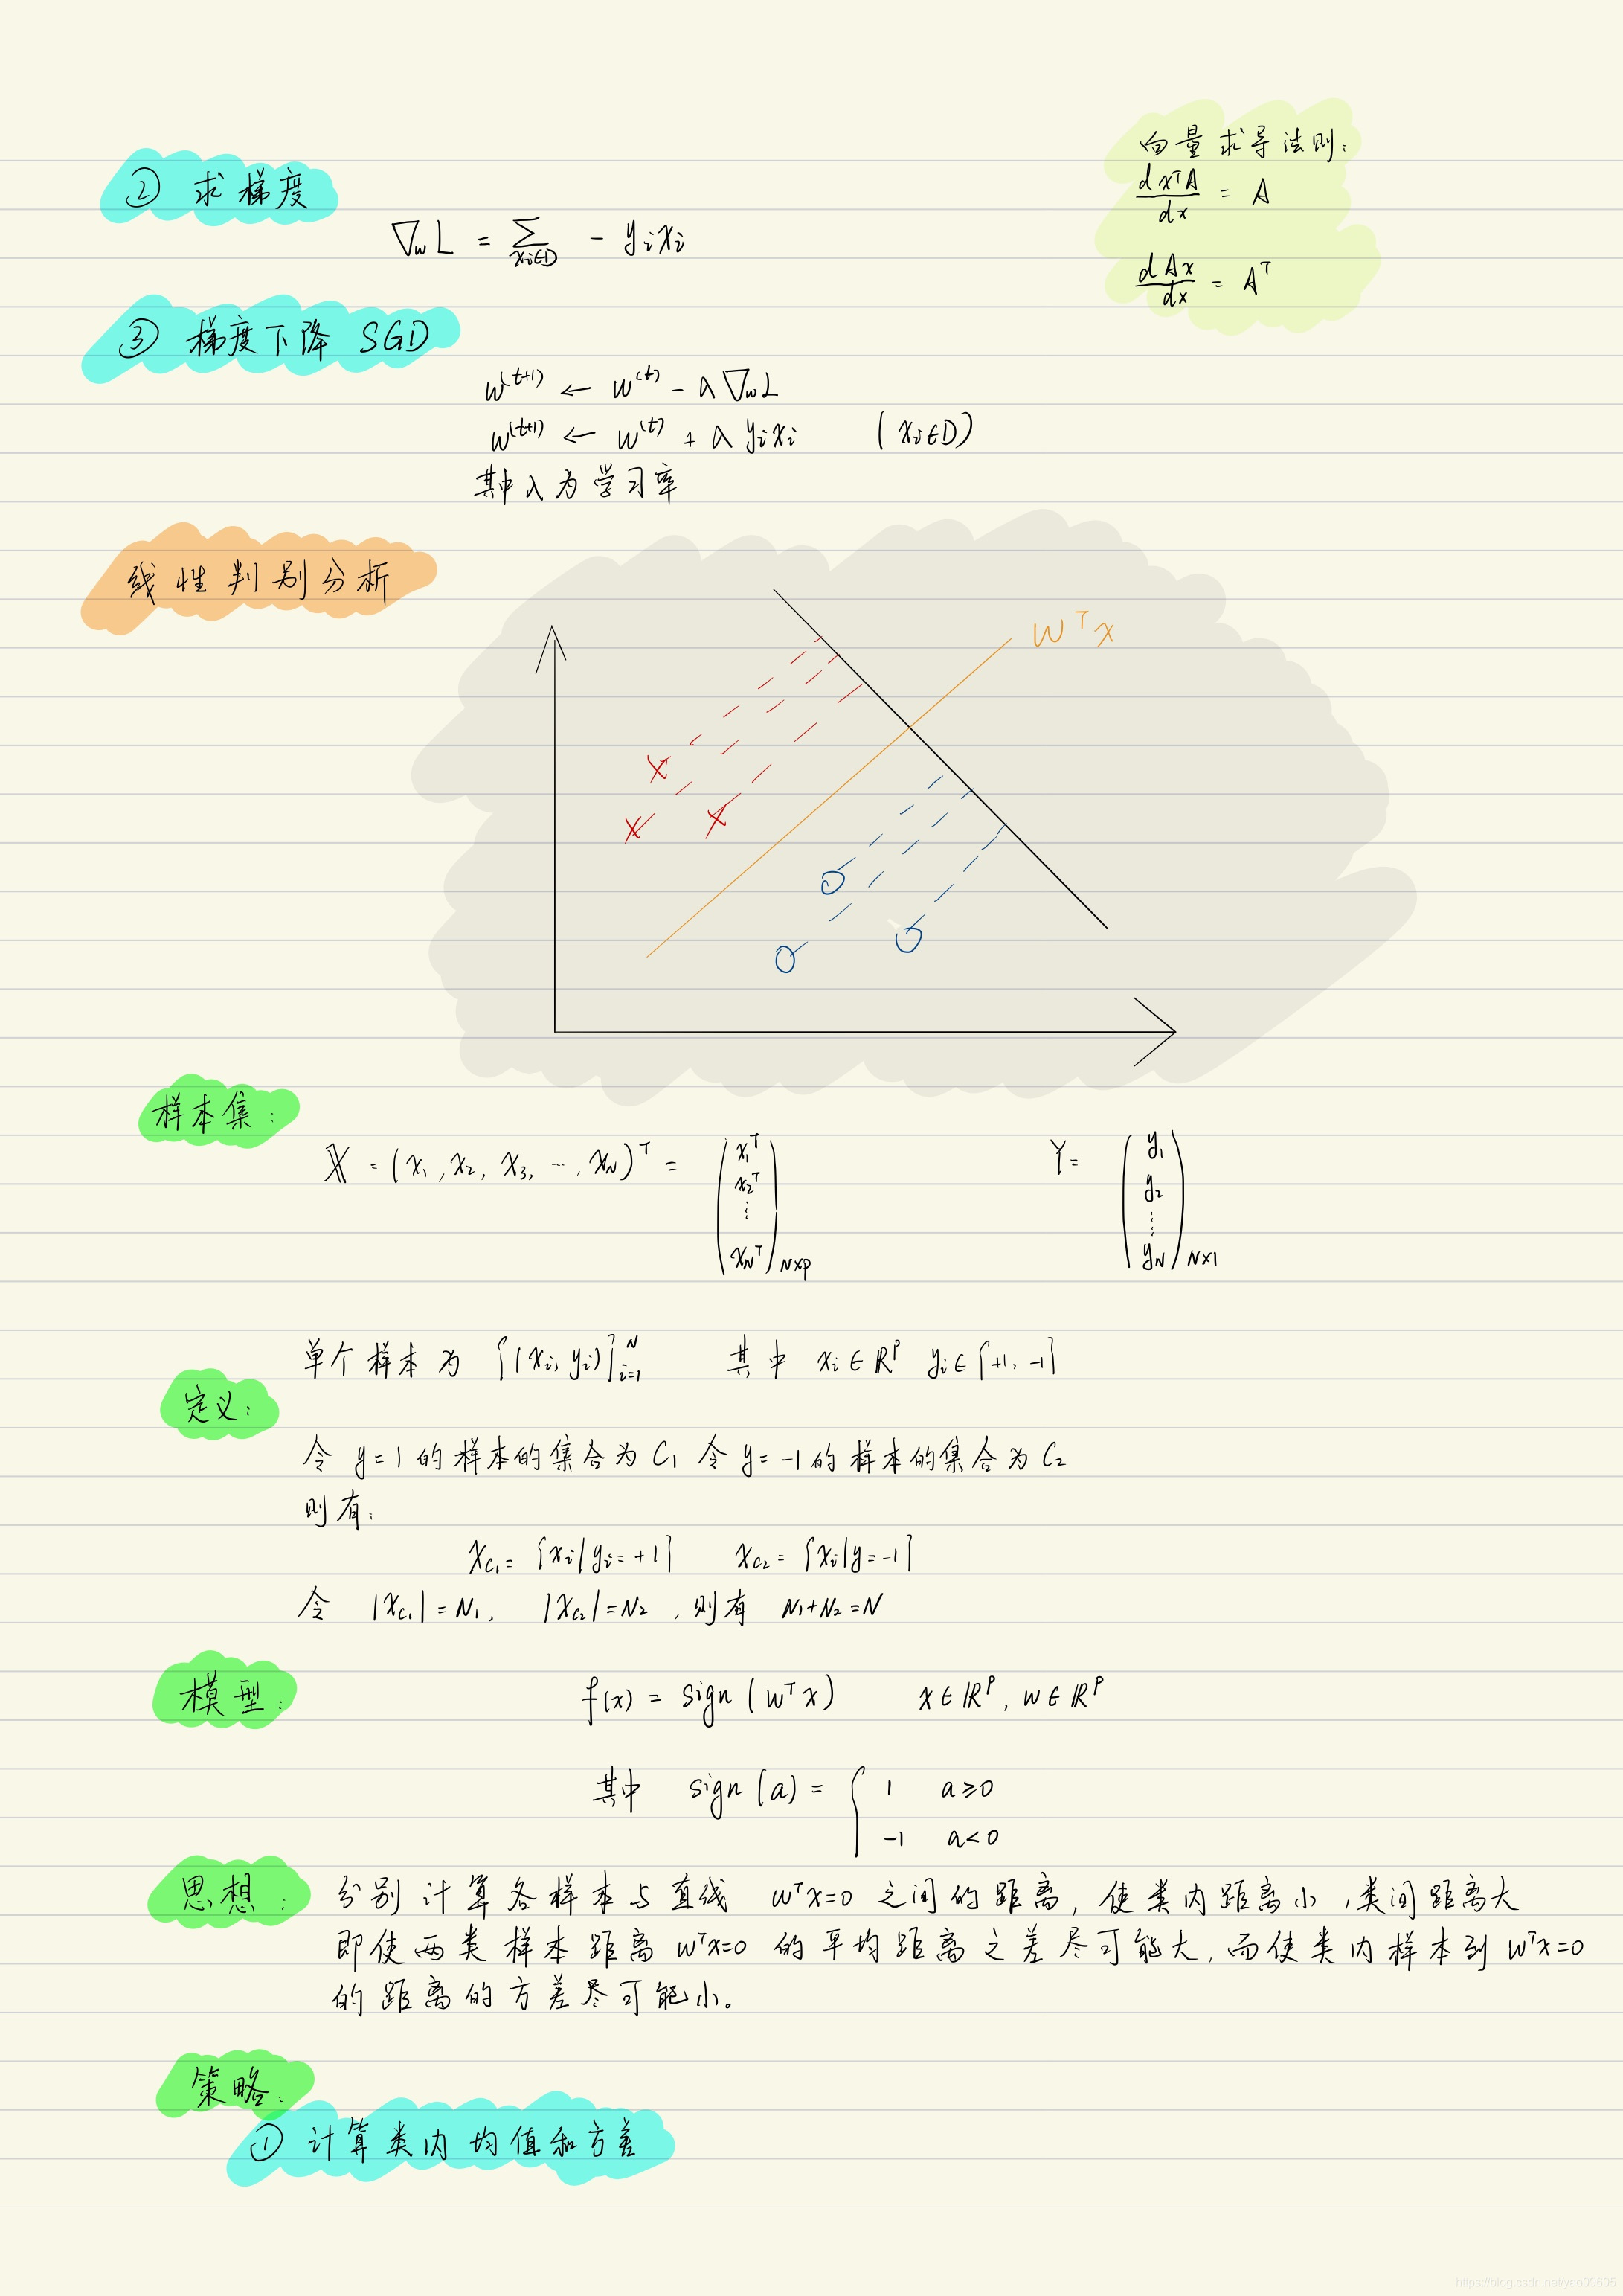 向量求导法则:
dxᵀA/dx = A
dAx/dx = Aᵀ
② 求梯度
∇wL = Σ_{xi∈D} - yixi
③ 梯度下降 SGD
w^(t+1) ← w^(t) - λ∇wL
w^(t+1) ← w^(t) + λyixi (xi∈D)
其中λ为学习率
线性判别分析
Wᵀx
样本集:
X = (x1, x2, x3, ..., xN)ᵀ = (x1ᵀ x2ᵀ ⋮ xNᵀ)N×p Y = (y1 y2 ⋮ yN)N×1
单个样本为 {(xi, yi)}_{i=1}^N 其中 xi∈ℝᵖ yi∈{+1, -1}
定义:
令 y=1 的样本的集合为C1 令 y=-1的样本的集合为C2
则有:
xC1 = {xi|yi=+1} xC2 = {xi|y=-1}
令 |xC1|=N1, |xC2|=N2 , 则有 N1+N2=N
模型: f(x) = sign(wᵀx) x∈ℝᵖ, w∈ℝᵖ
其中 sign(a) = { 1 a≥0
-1 a<0
思想: 分别计算各样本与直线 wᵀx=0 之间的距离, 使类内距离小, 类间距离大
即使两类样本距离 wᵀx=0 的平均距离之差尽可能大, 而使类内样本到 wᵀx=0
的距离的方差尽可能小。
策略:
① 计算类内均值和方差
https://blog.csdn.net/yao09605